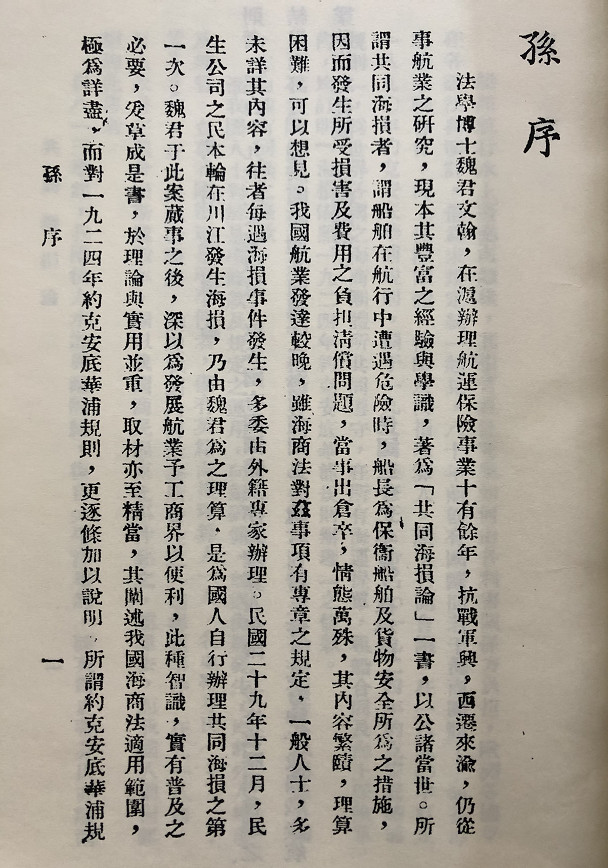 孫序
法學博士魏君文翰，在滬辦理航運保險事業十有餘年，抗戰軍興，西遷來渝，仍從
事航業之研究，現本其豐富之經驗與學識，著爲「共同海損論」一書，以公諸當世。所
謂共同海損者，謂船舶在航行中遭遇危險時，船長爲保衞船舶及貨物安全所爲之措施，
因而發生所受損害及費用之負担清償問題，當事出倉卒，情態萬殊，其內容繁賾，理算
困難，可以想見。我國航業發達較晚，雖海商法對茲事項有專章之規定．一般人士，多
未詳其內容，往者每遇海損事件發生，多委由外籍專家辦理。民國二十九年十二月，民
生公司之民本輪在川江發生海損，乃由魏君爲之理算．是爲國人自行辦理共同海損之第
一次。魏君于此案蕆事之後，深以爲發展航業予工商界以便利，此種智識，實有普及之
必要，爰草成是書，於理論與實用並重，取材亦至精當，其闡述我國海商法適用範圍，
極爲詳盡，而對一九二四年約克安底華浦規則，更逐條加以說明。所謂約克安底華浦規
孫序
一